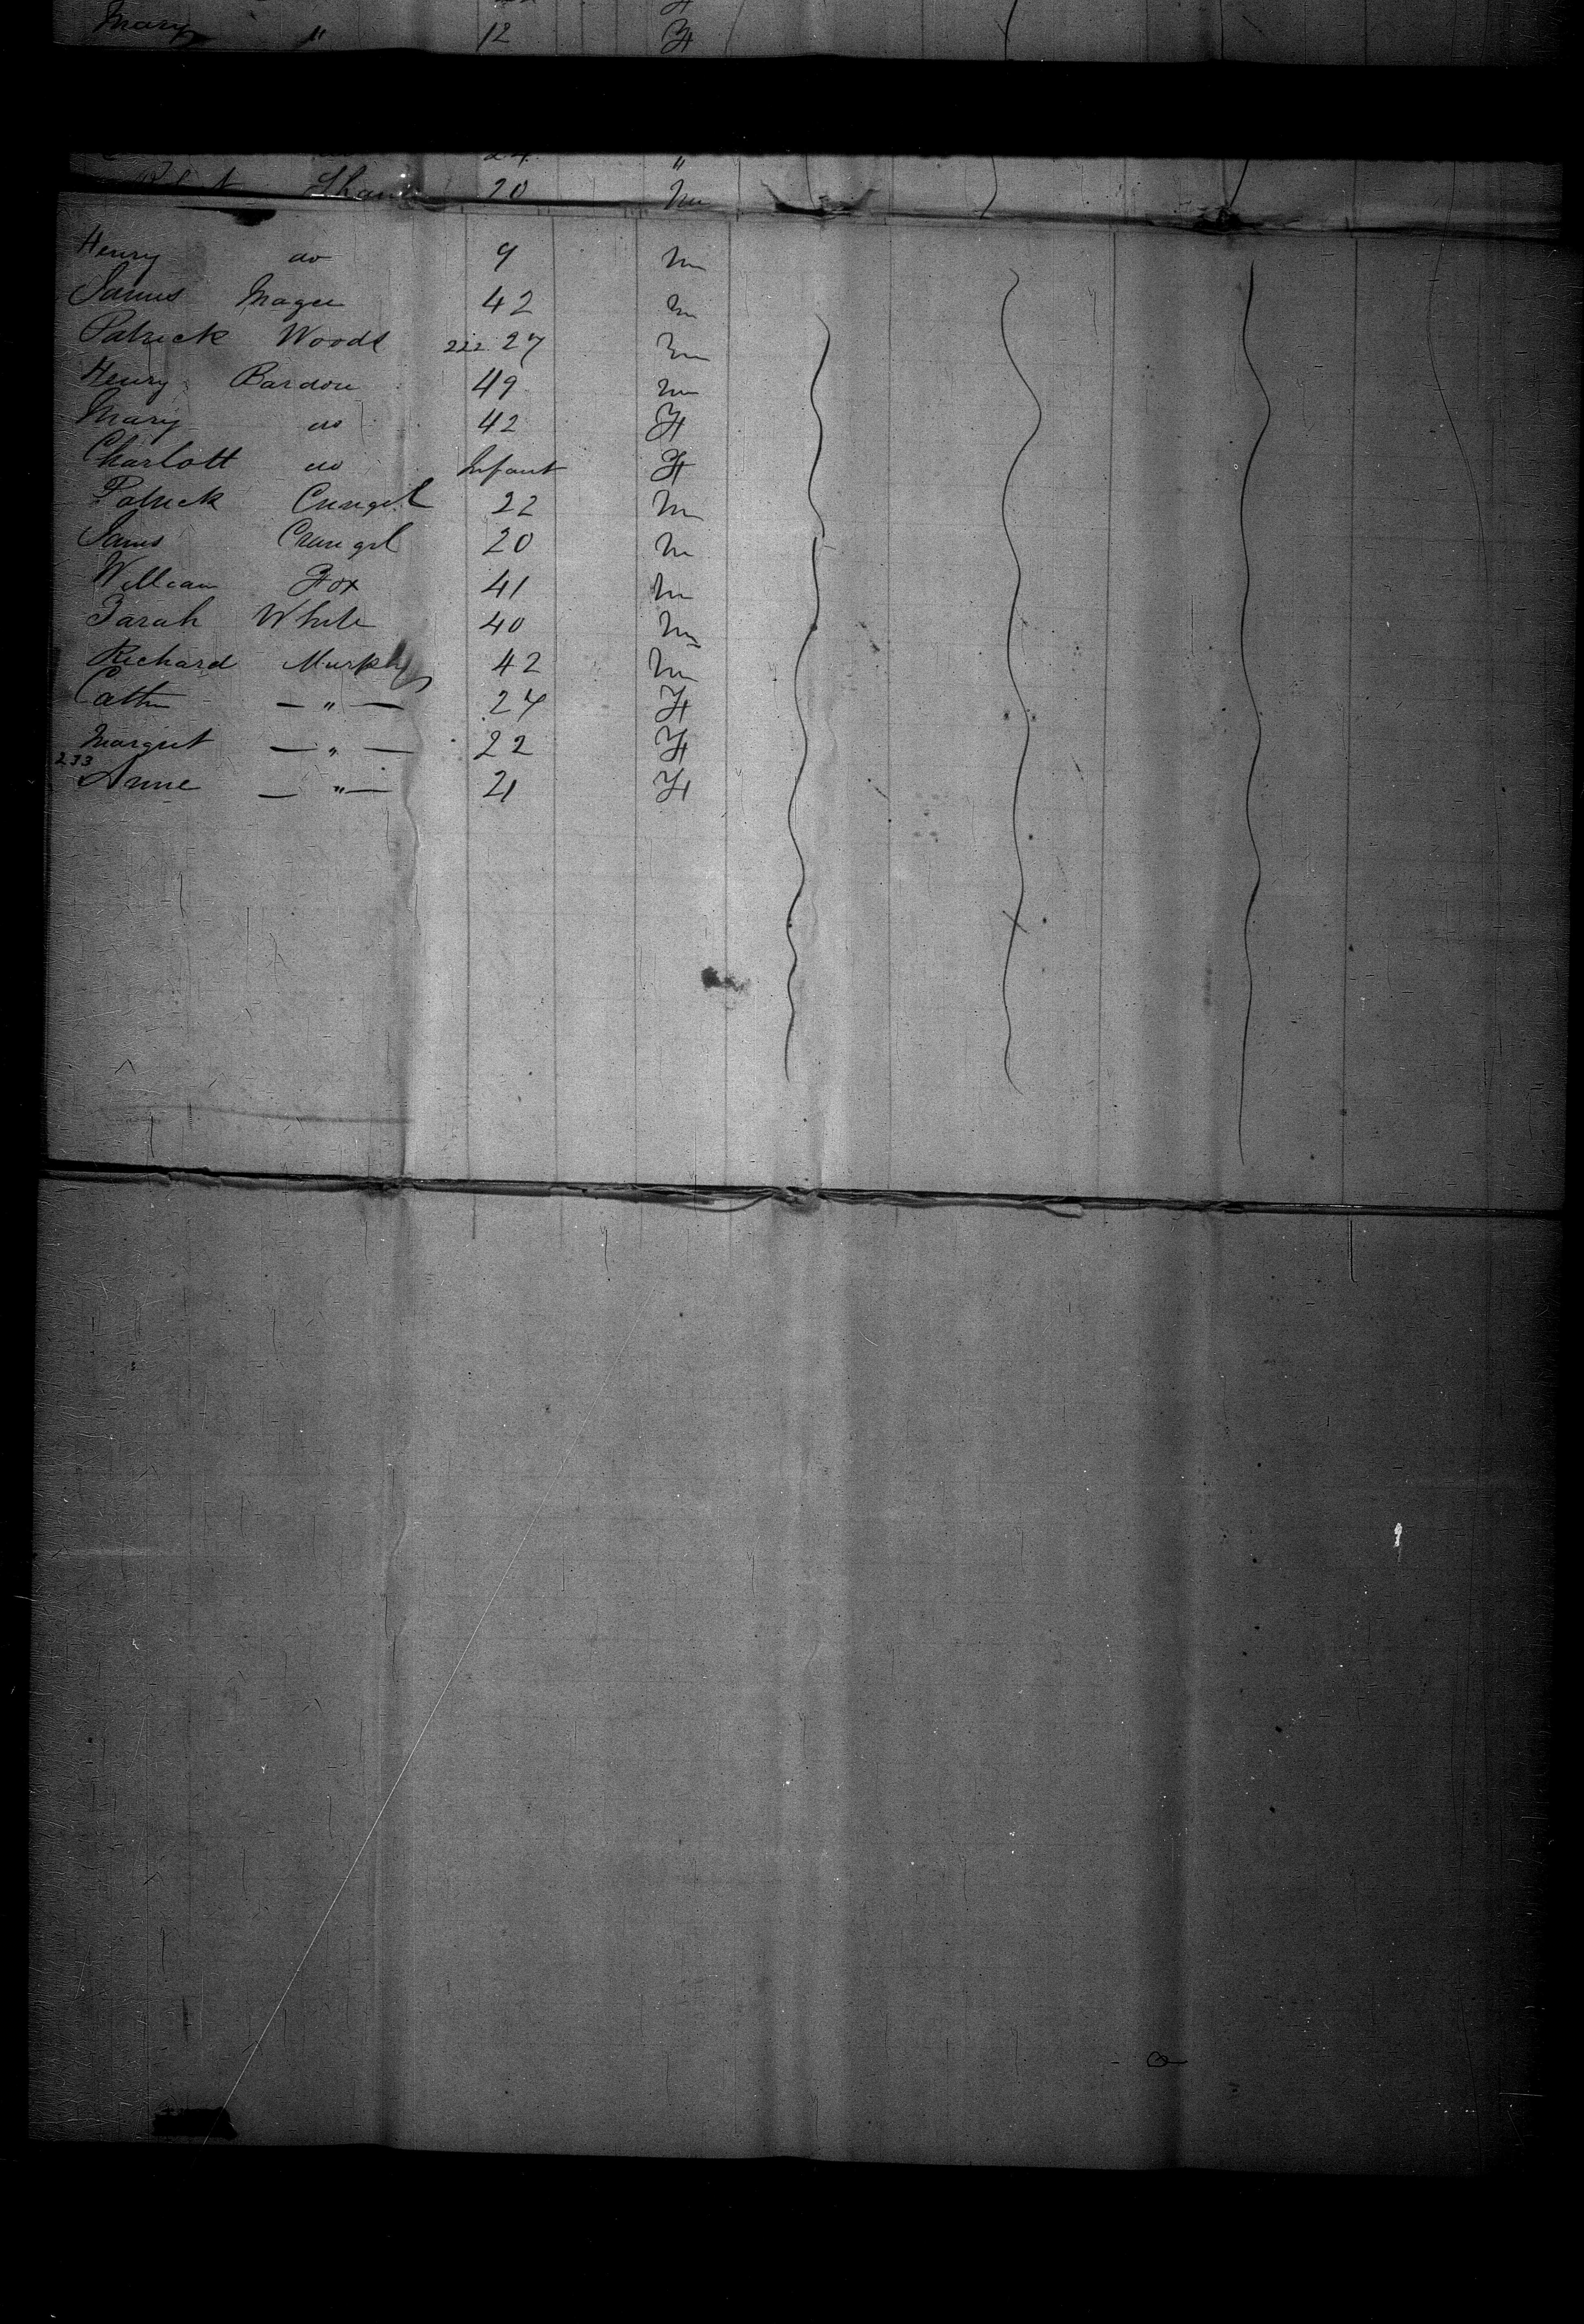 Mary " 12 F
24 "
20 m
Henry do 9 m
James Magee 42 m
Patrick Woods 222 27 m
Henry Bardon 49 m
Mary do 42 F
Charlott do Infant F
Patrick 22 m
James Crangel 20 m
William Fox 41 m
Sarah White 40 m
Richard Murphy 42 m
Cath — " — 24 F
Margret — " — 22 F
233
Anne — " — 21 F